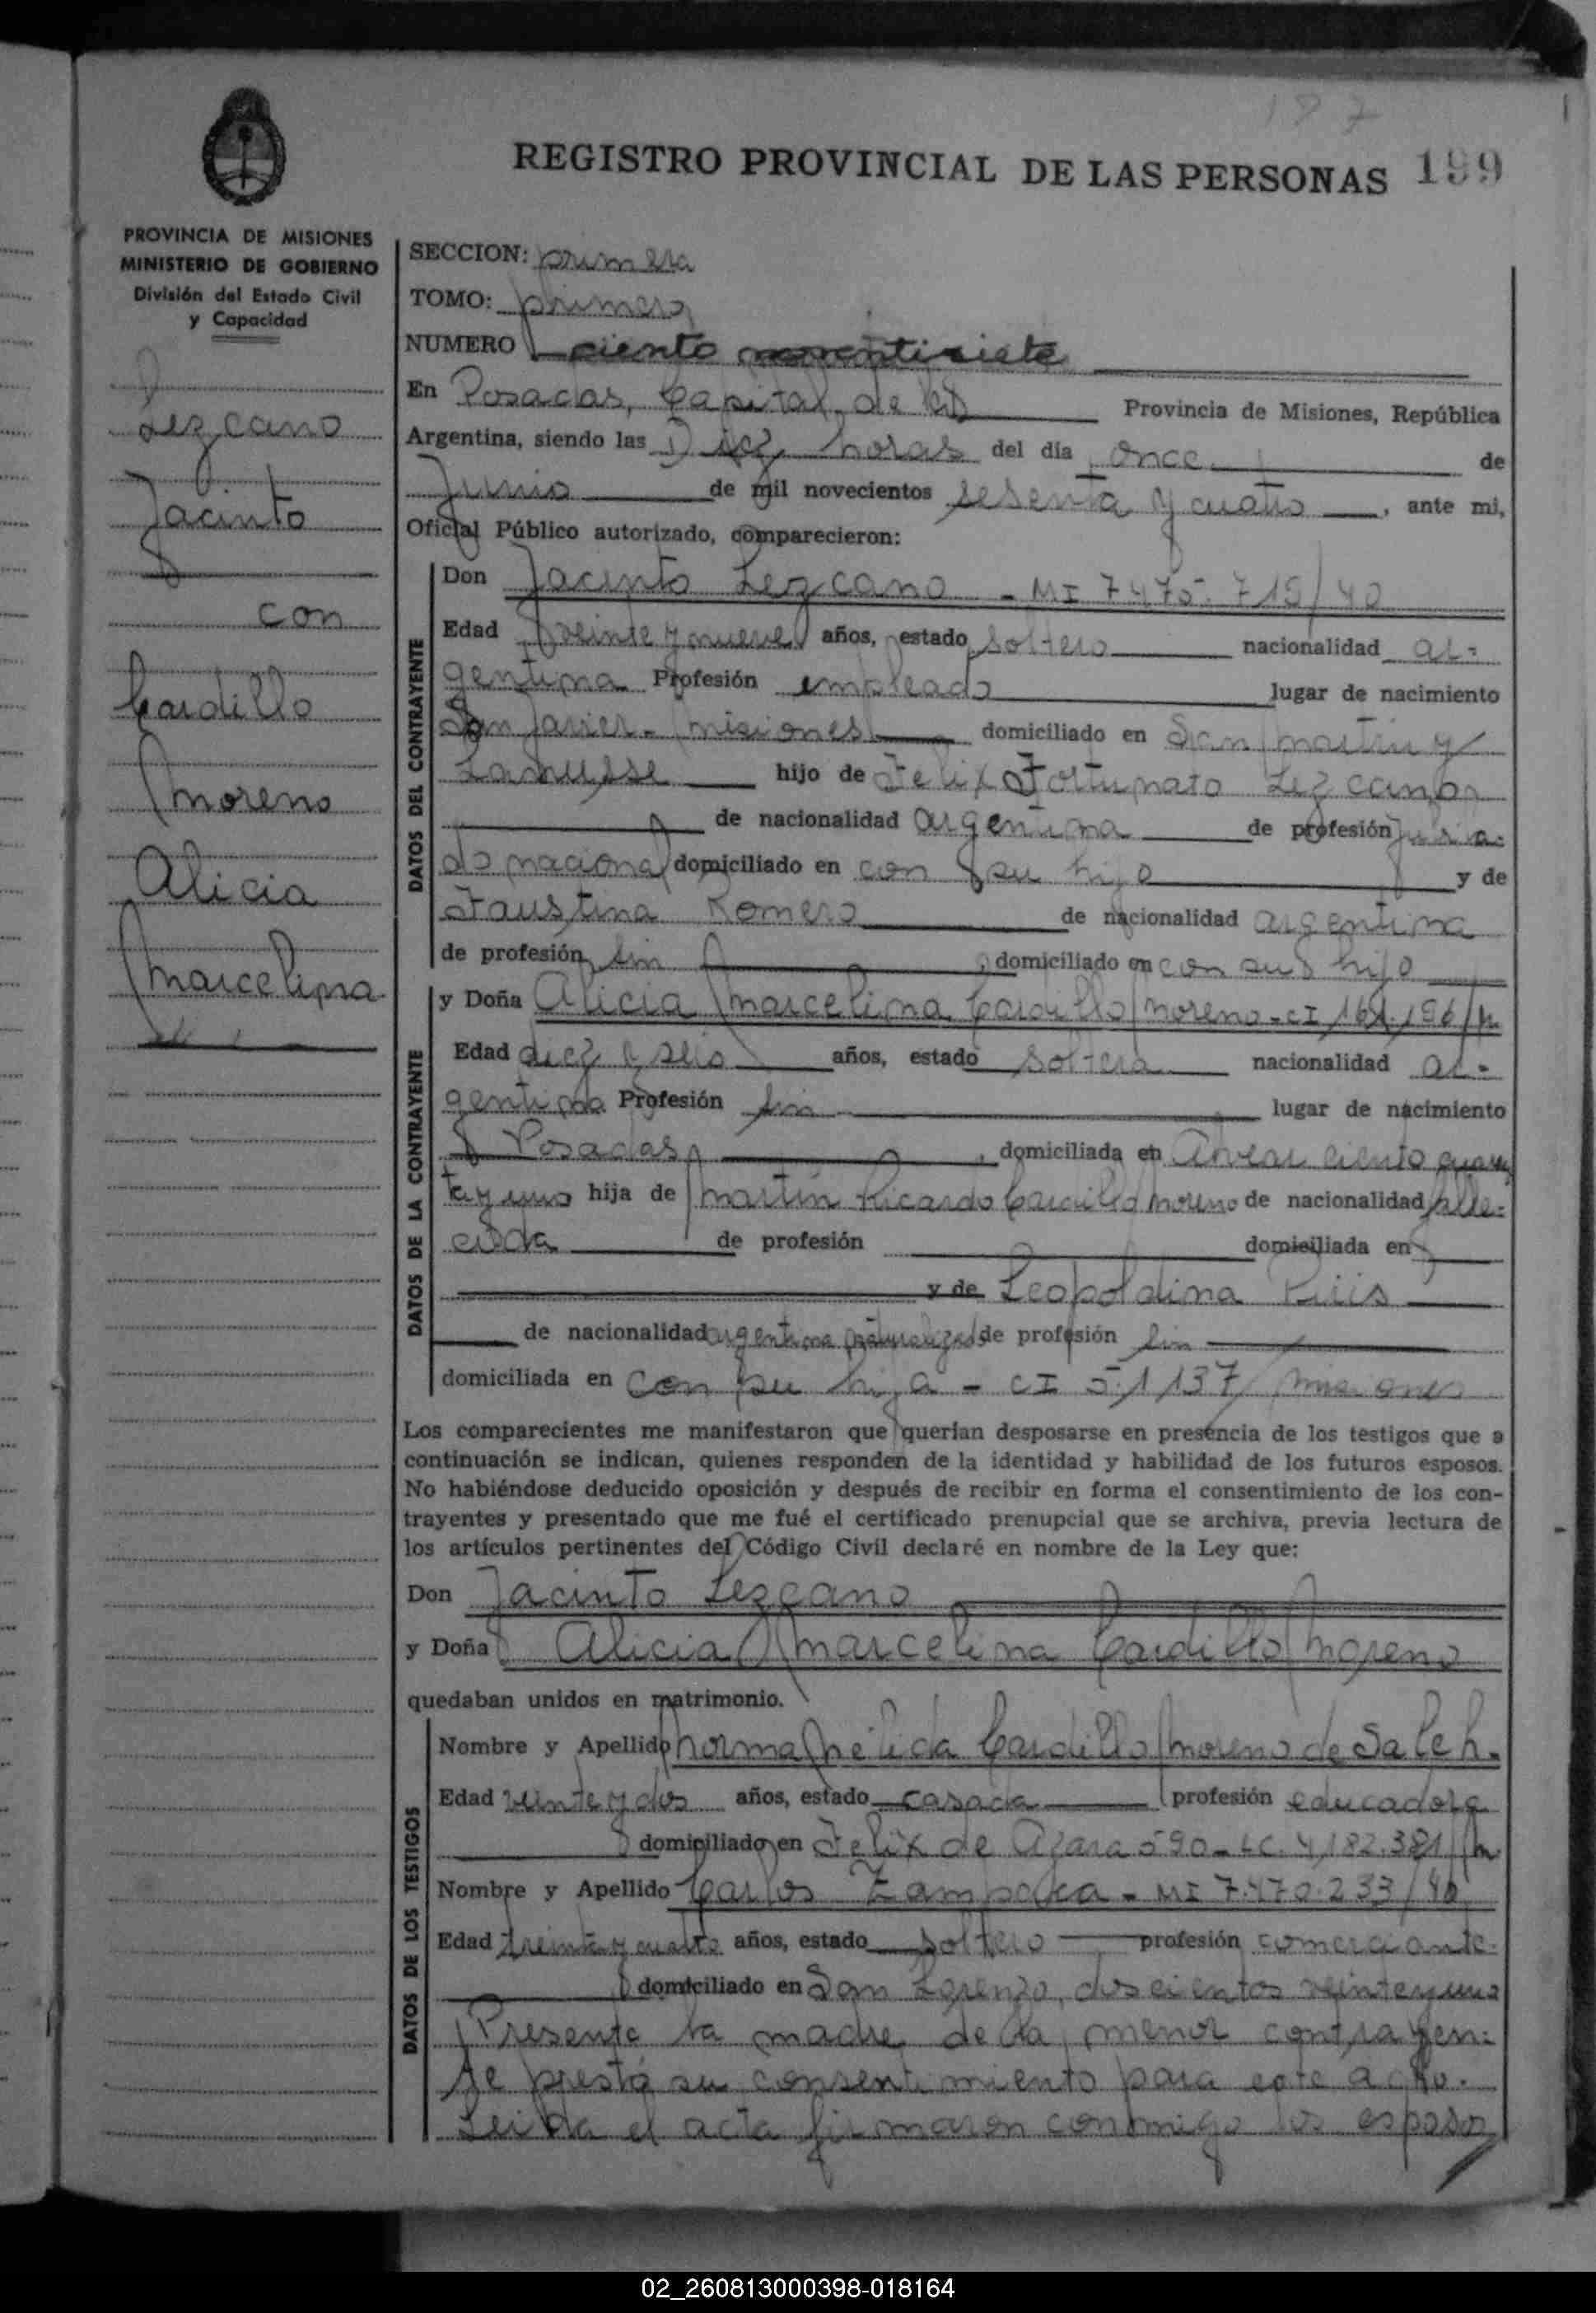 197
REGISTRO PROVINCIAL DE LAS PERSONAS 199
PROVINCIA DE MISIONES
MINISTERIO DE GOBIERNO
División del Estado Civil
y Capacidad
Lezcano
Jacinto
con
Cardillo
Moreno
Alicia
Marcelina
SECCION: primera
TOMO: primero
NUMERO ciento noventisiete
En Posadas, Capital de la Provincia de Misiones, República
Argentina, siendo las Diez horas del día once de
Junio de mil novecientos sesenta y cuatro, ante mi,
Oficial Público autorizado, comparecieron:
DATOS DEL CONTRAYENTE
Don Jacinto Lezcano - MI 7475.715/40
Edad veinte y nueve años, estado soltero nacionalidad ar-
gentina Profesión empleado lugar de nacimiento
San Javier - Misiones domiciliado en San Martín y
Lanusse hijo de Felix Fortunato Lezcano
de nacionalidad argentina de profesión jubila-
do nacional domiciliado en con su hijo y de
Faustina Romero de nacionalidad argentina
de profesión sin domiciliado en con su hijo
DATOS DE LA CONTRAYENTE
y Doña Alicia Marcelina Cardillo Moreno - CI
Edad diez y seis años, estado soltera nacionalidad ar-
gentina Profesión sin lugar de nacimiento
Posadas, domiciliada en Alvear ciento cuaren
ta y uno hija de Martín Ricardo Cardillo Moreno de nacionalidad falle-
cida de profesión domiciliada en
y de Leopoldina
de nacionalidad argentina naturalizada de profesión sin
domiciliada en con su hija - CI 51137/Misiones
Los comparecientes me manifestaron que querían desposarse en presencia de los testigos que a
continuación se indican, quienes responden de la identidad y habilidad de los futuros esposos.
No habiéndose deducido oposición y después de recibir en forma el consentimiento de los con-
trayentes y presentado que me fué el certificado prenupcial que se archiva, previa lectura de
los artículos pertinentes del Código Civil declaré en nombre de la Ley que:
Don Jacinto Lezcano
y Doña Alicia Marcelina Cardillo Moreno
quedaban unidos en matrimonio.
DATOS DE LOS TESTIGOS
Nombre y Apellido Norma Nélida Cardillo Moreno de Saleh.
Edad veinte y dos años, estado casada profesión educadora
domiciliado en Felix de Azara 590 - LC. 4.182.381/M
Nombre y Apellido Carlos - MI 7.470.233/40
Edad treinta y cuatro años, estado soltero profesión comerciante.
domiciliado en San Lorenzo, doscientos veinte y uno
Presente la madre de la menor contrayen-
te presta su consentimiento para este acto.
Leida el acta firmaron conmigo los esposos
02_260813000398-018164